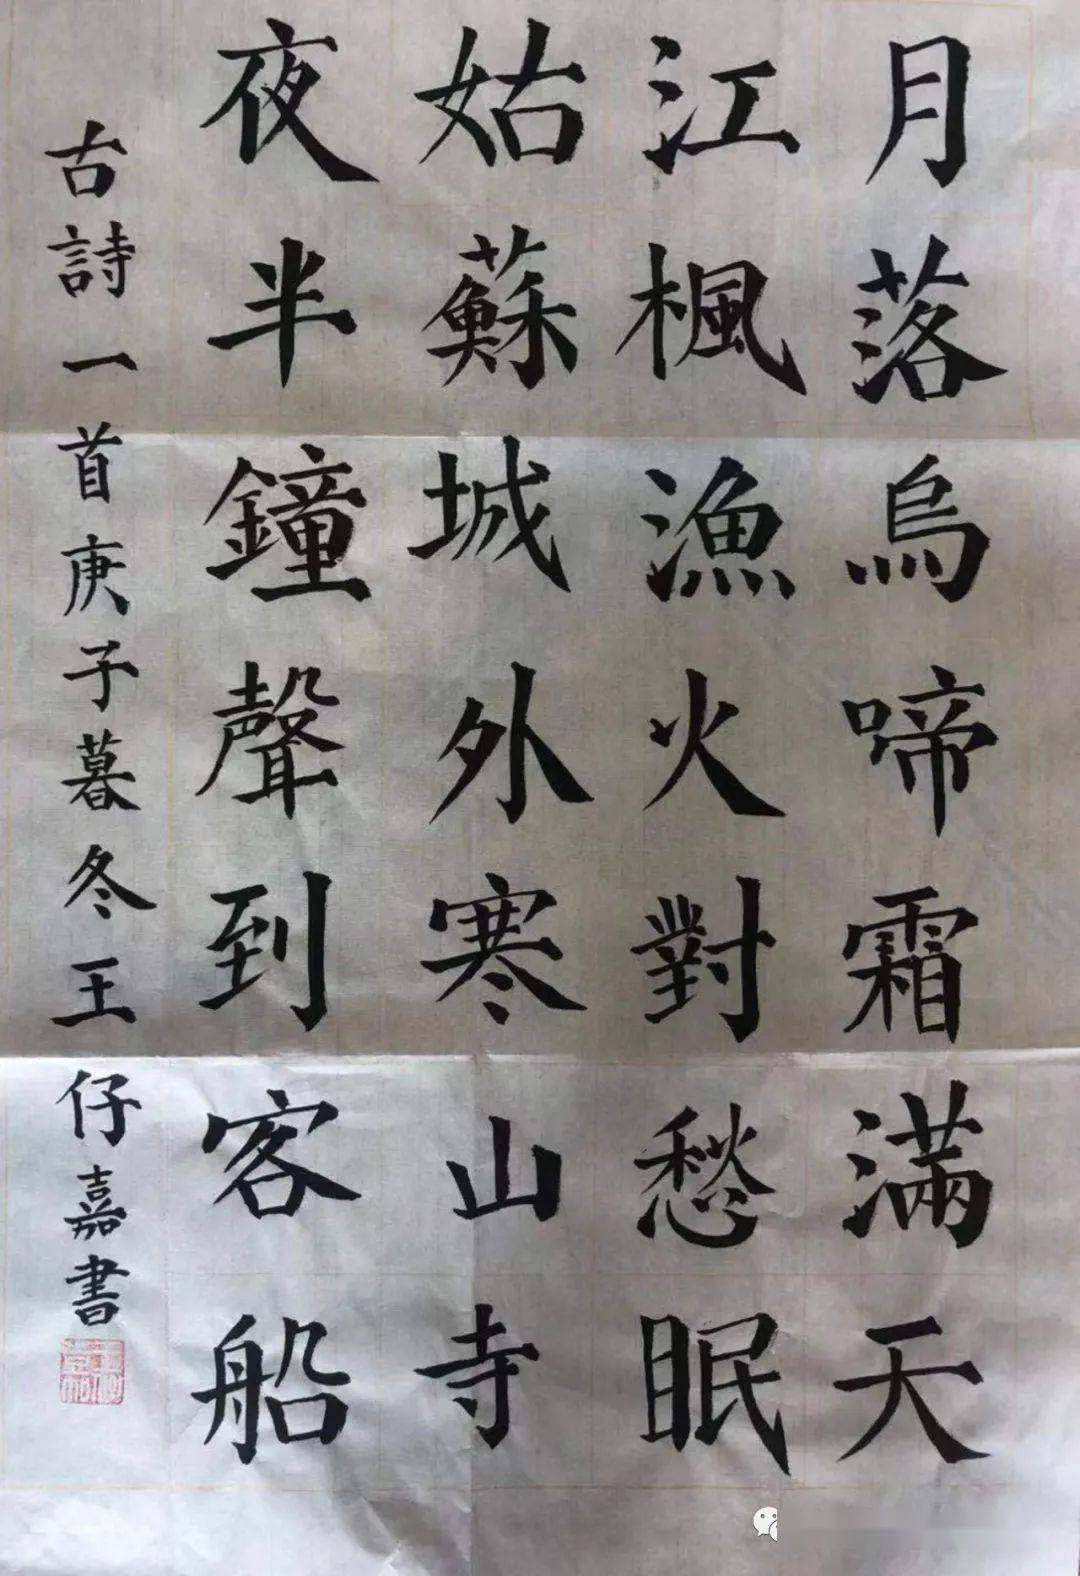 月落烏啼霜滿天
江楓漁火對愁眠
姑蘇城外寒山寺
夜半鐘聲到客船
古詩一首庚子暮冬王仔嘉書